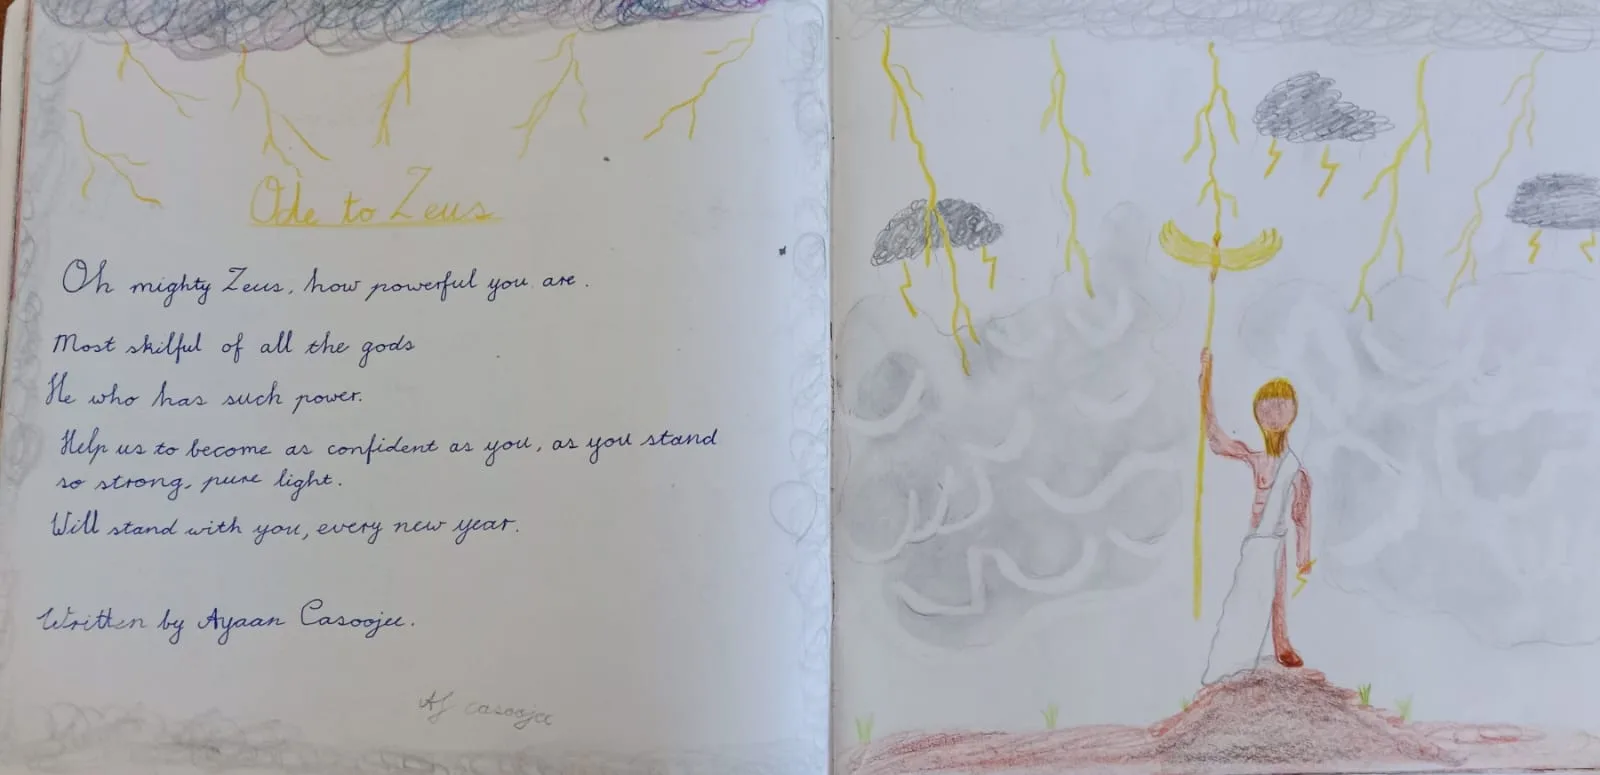 Ode to Zeus
Oh mighty Zeus, how powerful you are.
Most skilful of all the gods
He who has such power.
Help us to become as confident as you, as you stand
so strong, pure light.
Will stand with you, every new year.
Written by Ayaan Casoojee.
casoojee